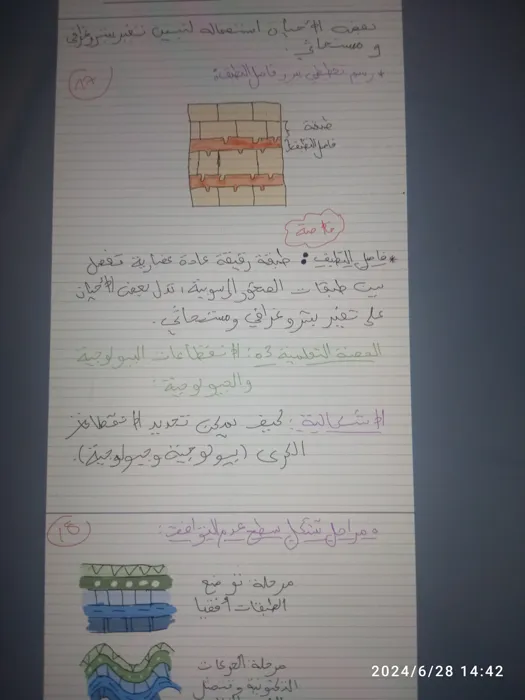 بعض الأحيان استعماله لتبيين تغير بتروغرافي
و مستحاثي.
* رسم تخطيطي يبرز فاصل التطبق:
طبقة
فاصل التطبق
خلاصة
* فاصل التطبق: طبقة رقيقة عادة غضارية تفصل
بين طبقات الصخور الرسوبية، تدل بعض الأحيان
على تغير بتروغرافي ومستحاثي.
الحصة التعلمية 03: الانقطاعات البيولوجية
والجيولوجية
الإشكالية: كيف يمكن تحديد الانقطاعات
الكبرى (بيولوجية وجيولوجية).
18
* مراحل تشكل سطح عدم التوافق:
مرحلة توضع
الطبقات أفقيا
مرحلة الحركات
التكتونية و تتمثل
2024/6/28 14:42